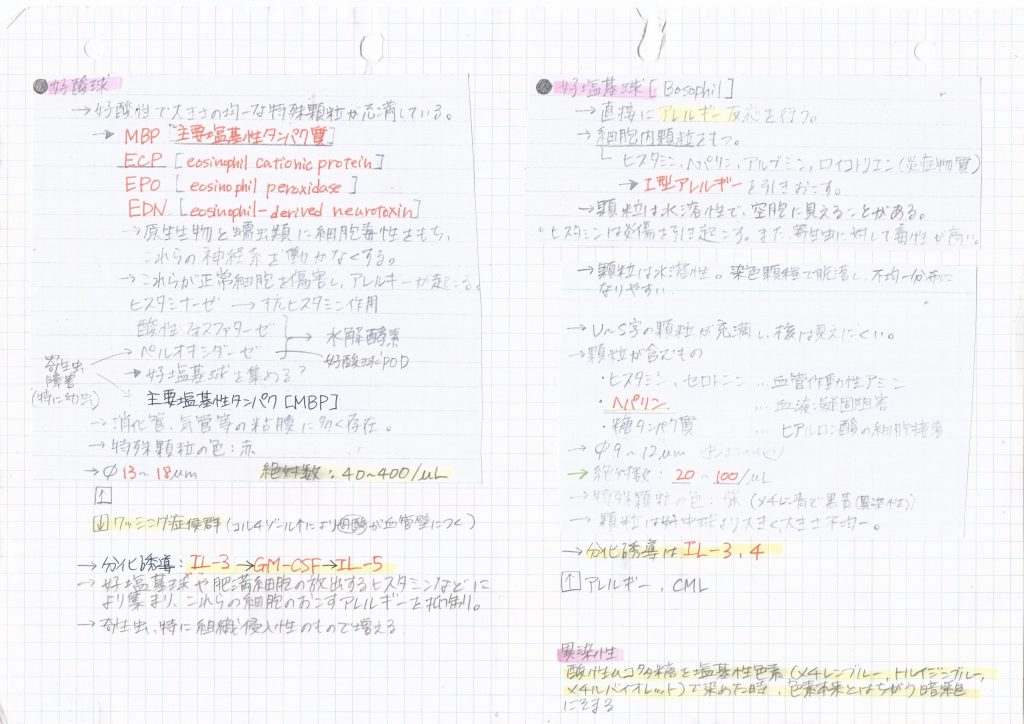 ●好酸球
→好酸性で大きさの均一な特殊顆粒が充満している。
→MBP[主要塩基性タンパク質]
ECP[eosinophil cationic protein]
EPO[eosinophil peroxidase]
EDN[eosinophil-derived neurotoxin]
→原生生物と蠕虫類に細胞毒性をもち、
これらの神経系を働かなくする。
→これらが正常細胞を傷害し、アレルギーが起こる。
ヒスタミナーゼ→抗ヒスタミン作用
酸性ホスファターゼ
→水解酵素
ペルオキシダーゼ
好酸球POD
寄生虫
障害
(特に幼虫)
→好塩基球を集める?
主要塩基性タンパク[MBP]
→消化管、気管等の粘膜に多く存在。
→特殊顆粒の色:赤
→φ13~18μm 絶対数:40~400/μL
↑
↓クッシング症候群(コルチゾール↑により好酸が血管壁につく)
→分化誘導:IL-3→GM-CSF→IL-5
→好塩基球や肥満細胞の放出するヒスタミンなどに
より集まり、これらの細胞のおこすアレルギーを抑制。
→寄生虫、特に組織侵入性のもので増える
●好塩基球[Bosophil]
→直接にアレルギー反応を行う。
→細胞内顆粒をもつ。
ヒスタミン,ヘパリン,アルブミン,ロイコトリエン(炎症物質)
→I型アレルギーを引きおこす。
→顆粒は水溶性で、空胞に見えることがある。
ヒスタミンは炎傷を引き起こす。また、寄生虫に対して毒性が高い。
→顆粒は水溶性。染色顆粒で脱落し、不均一分布に
なりやすい
→U~S字の顆粒が充満し、核は見えにくい。
→顆粒が含むもの
・ヒスタミン、セロトニン …血管作動性アミン
・ヘパリン …血液凝固阻害
・糖タンパク質 …ヒアルロン酸の細胞接着
→φ9~12μm
→絶対数:20~100/μL
→特殊顆粒の色:紫(メチレン青で異青(異染性))
→顆粒は好中球より大きく大きさ不均一。
→分化誘導はIL-3,4
↑アレルギー,CML
異染性
酸性ムコ多糖を塩基性色素(メチレンブルー,トルイジンブルー,
メチルバイオレット)で染めた時、色素本来とはちがう暗紫色
にそまる